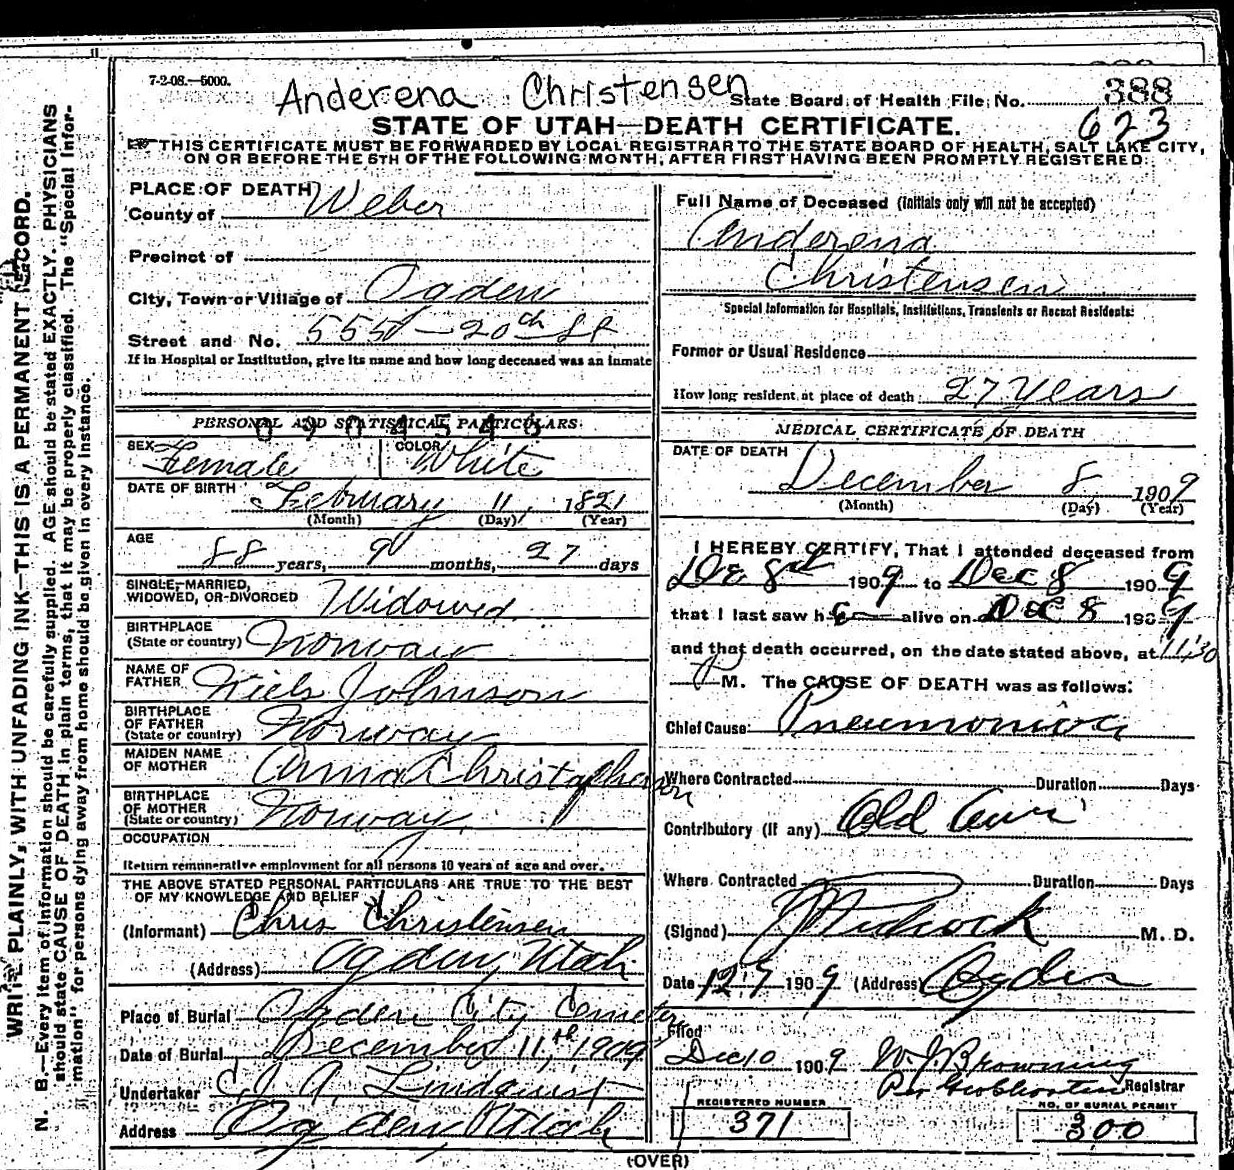 WRITE PLAINLY, WITH UNFADING INK—THIS IS A PERMANENT RECORD.
N. B.—Every item of information should be carefully supplied. AGE should be stated EXACTLY. PHYSICIANS
should state CAUSE OF DEATH in plain terms, that it may be properly classified. The "Special Infor-
mation" for persons dying away from home should be given in every instance.
7-2-08.—5000.
Anderena Christensen
State Board of Health File No. 388
623
STATE OF UTAH—DEATH CERTIFICATE.
THIS CERTIFICATE MUST BE FORWARDED BY LOCAL REGISTRAR TO THE STATE BOARD OF HEALTH, SALT LAKE CITY,
ON OR BEFORE THE 5TH OF THE FOLLOWING MONTH, AFTER FIRST HAVING BEEN PROMPTLY REGISTERED
PLACE OF DEATH
County of Weber
Precinct of
City, Town or Village of Ogden
Street and No. 555 — 20th St
If in Hospital or Institution, give its name and how long deceased was an inmate
PERSONAL AND STATISTICAL PARTICULARS
0904546
SEX Female COLOR White
DATE OF BIRTH February 11, 1821
(Month) (Day) (Year)
AGE
88 years, 9 months, 27 days
SINGLE, MARRIED,
WIDOWED, OR DIVORCED Widowed
BIRTHPLACE
(State or country) Norway
NAME OF
FATHER Niels Johnson
BIRTHPLACE
OF FATHER
(State or country) Norway
MAIDEN NAME
OF MOTHER Anna Christopherson
BIRTHPLACE
OF MOTHER
(State or country) Norway
OCCUPATION
Return remunerative employment for all persons 10 years of age and over.
THE ABOVE STATED PERSONAL PARTICULARS ARE TRUE TO THE BEST
OF MY KNOWLEDGE AND BELIEF
(Informant) Chris Christensen
(Address) Ogden, Utah
Place of Burial Ogden City Cemetery
Date of Burial December 11th, 1909
Undertaker C. J. A. Lindquist
Address Ogden, Utah
Full Name of Deceased (Initials only will not be accepted)
Anderena
Christensen
Special Information for Hospitals, Institutions, Transients or Recent Residents:
Former or Usual Residence
How long resident at place of death 27 Years
MEDICAL CERTIFICATE OF DEATH
DATE OF DEATH
December 8 1909
(Month) (Day) (Year)
I HEREBY CERTIFY, That I attended deceased from
1909 to Dec 8 1909
that I last saw her alive on Dec 8 1909
and that death occurred, on the date stated above, at 11:30
P M. The CAUSE OF DEATH was as follows:
Chief Cause: Pneumonia
Where Contracted Duration Days
Contributory (If any) Old
Where Contracted Duration Days
(Signed) M. D.
Date 12-9 1909 (Address) Ogden
Filed
Dec 10 1909 W J Browning
Per Registrar
REGISTERED NUMBER
371
NO. OF BURIAL PERMIT
300
(OVER)